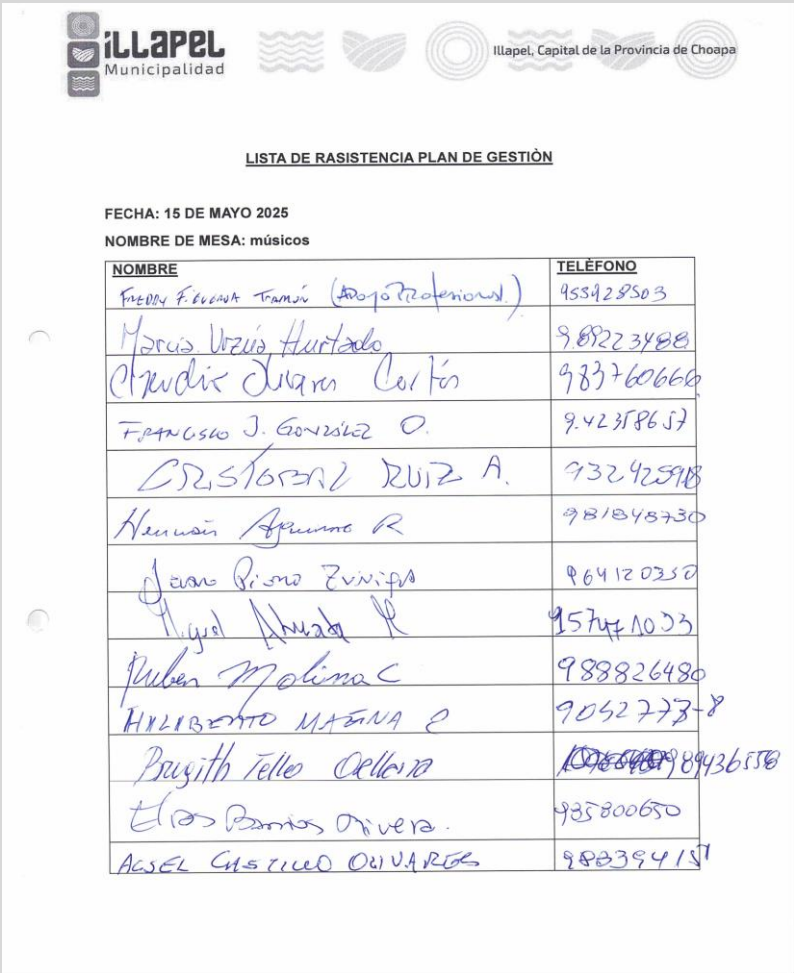 iLLAPEL
Municipalidad
Illapel, Capital de la Provincia de Choapa
LISTA DE RASISTENCIA PLAN DE GESTIÒN
FECHA: 15 DE MAYO 2025
NOMBRE DE MESA: músicos
NOMBRE TELÈFONO
FREDDY (Apoyo Profesional.) 955928503
Marcia Urzúa Hurtado 9.89223488
Claudia Olivares Cortés 983760666
FRANCISCO J. GONZÁLEZ O. 9.42358657
CRISTOBAL RUIZ A. 932425918
Hernán R 981848730
Juan Zuniga 964120350
Miguel
Ruben Molina C 988826480
9052773-8
Brigith Tello 989436558
Elias Barrios Rivera. 935800650
ACSEL CASTILLO OLIVARES 988394151